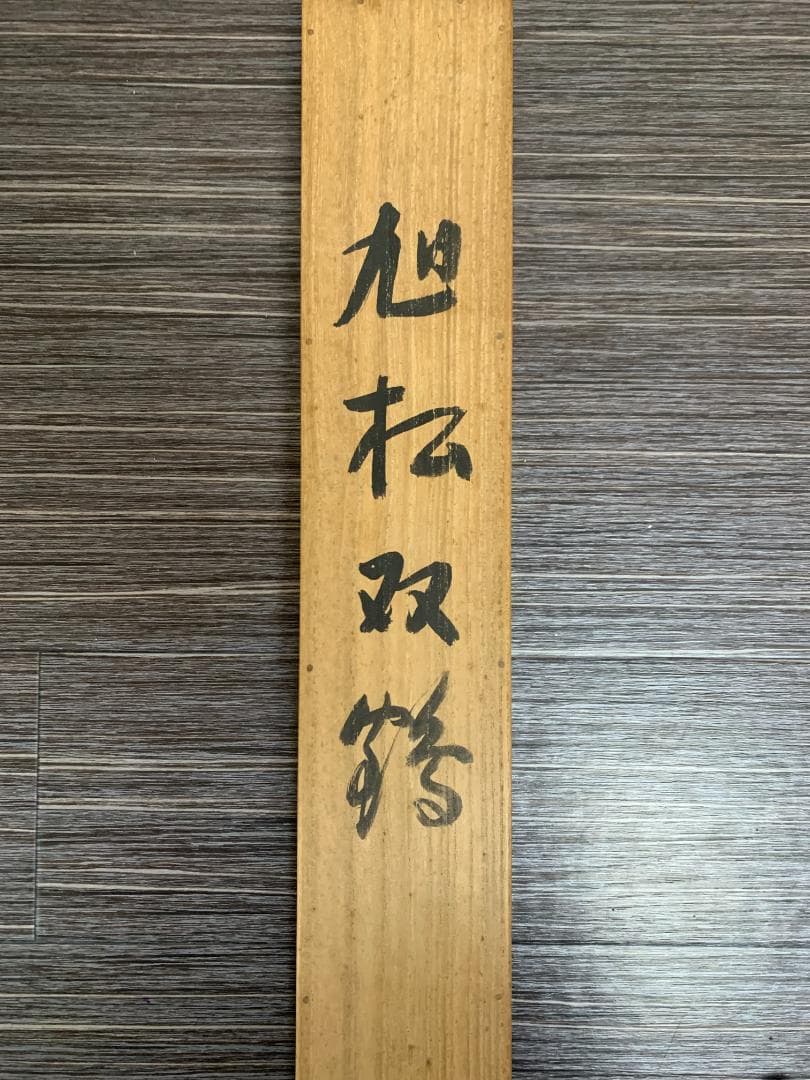 旭松双鶴